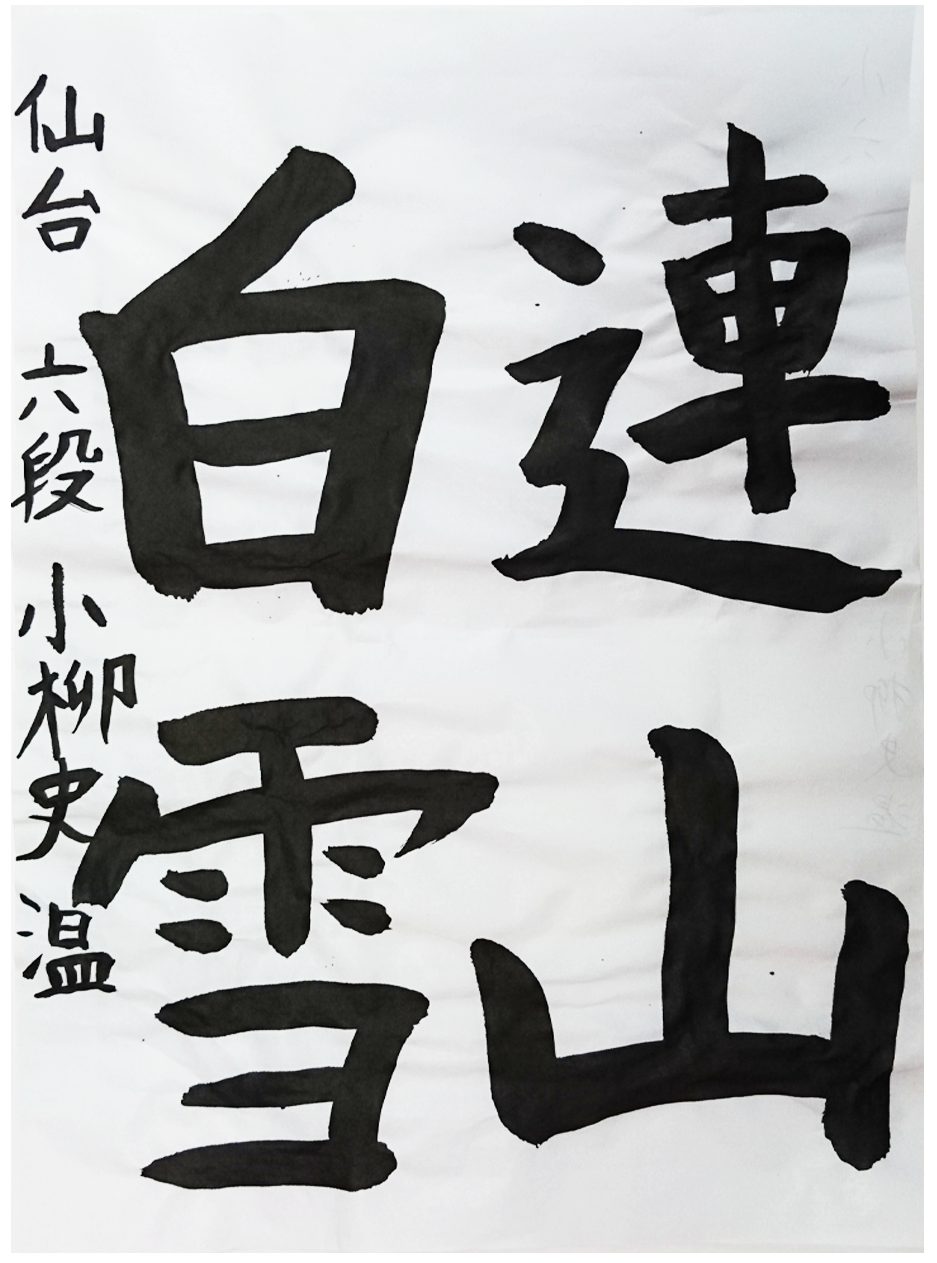 連山
白雪
仙台 六段 小柳史温